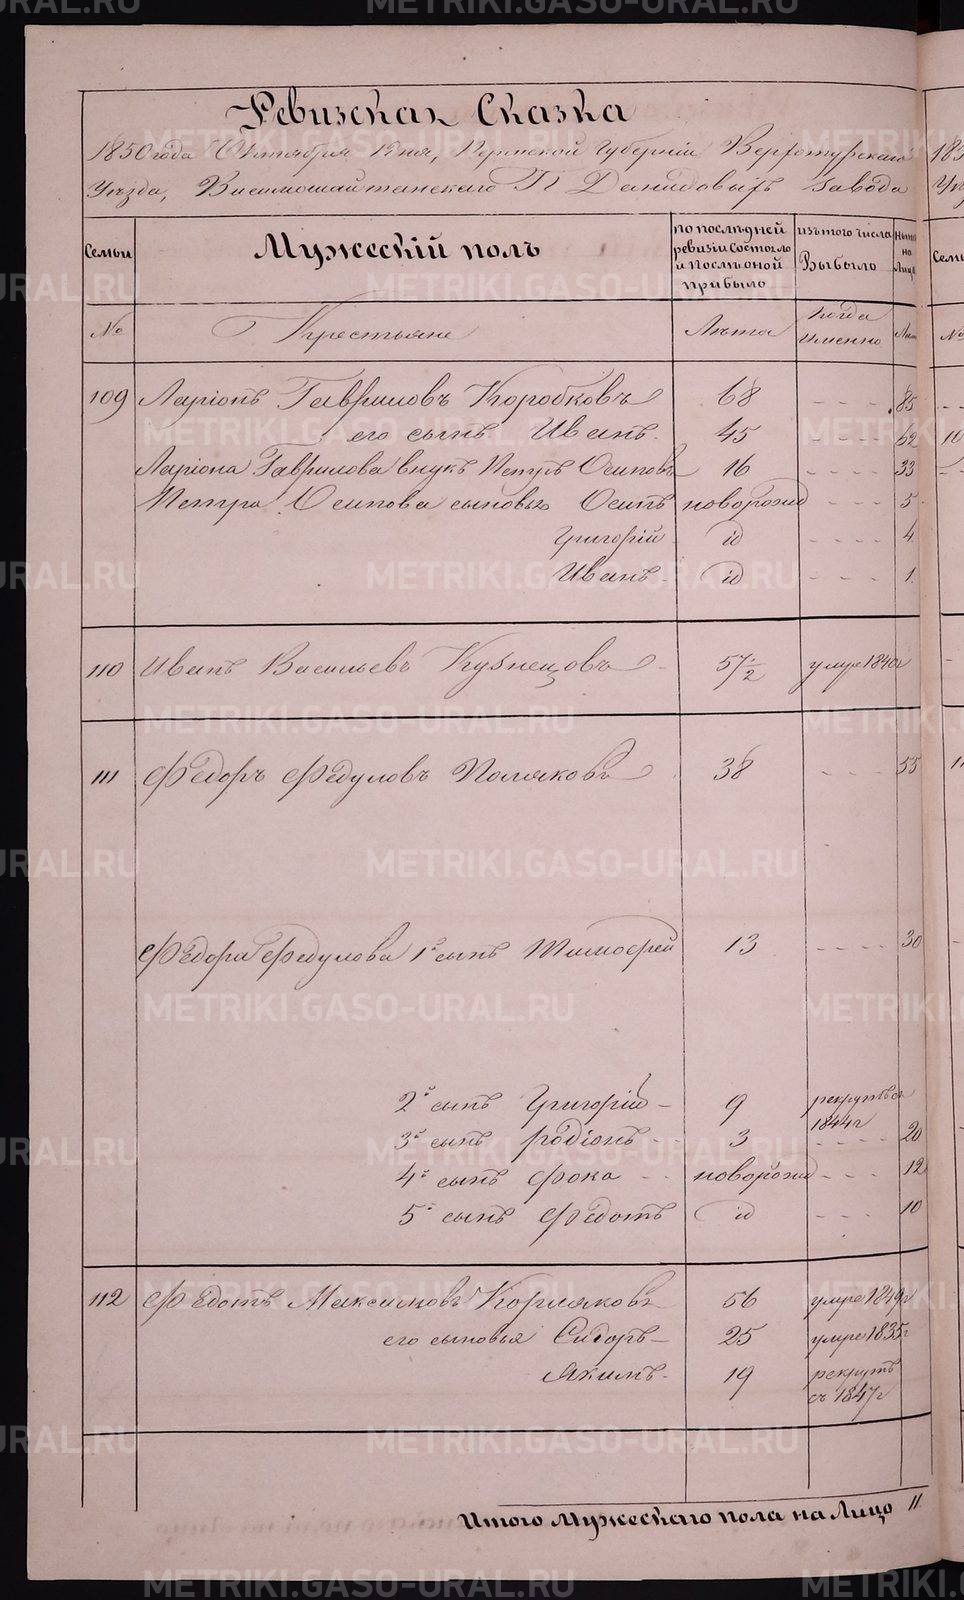 Ревизская Сказка
1850 года Октября дня, Пермской Губерніи Верхотурскаго
Уѣзда, Висимошайтанскаго Г.г. Демидовыхъ завода
Семьи
Мужескій полъ
по послѣдней
ревизіи состояло
и послѣ оной
прибыло
изъ того числа
Выбыло
Ныне
на
Лицо
№
Крестьяне
Лѣта
Когда
именно
Лѣта
109 Ларіонъ Гавриловъ Коробковъ 68 - - - - 85
его сынъ Иванъ 45 - - - - 62
Ларіона Гаврилова внукъ Петръ Осиповъ 16 - - - - 33
Петра Осипова сыновья Осипъ новорожд - - - 5
Григорій id - - - - 4
Иванъ id - - - - 1
110 Иванъ Васильевъ Кузнецовъ 57 1/2 умре 1840 г
111 Федоръ Федуловъ Поляковъ 38 - - - - 55
Федора Федулова 1й сынъ Тимофей 13 - - - - 30
2й сынъ Григорій 9 рекрутъ съ
1844 г
3й сынъ Родіонъ 3 - - - - 20
4й сынъ Фока новорожд - - - 12
5й сынъ Федотъ id - - - 10
112 Федотъ Максимовъ Корляковъ 56 умре 1849 г
его сыновья Сидоръ 25 умре 1835 г
Якимъ 19 рекрутъ
съ 1847 г
Итого Мужескаго пола на Лицо 11
METRIKI.GASO-URAL.RU